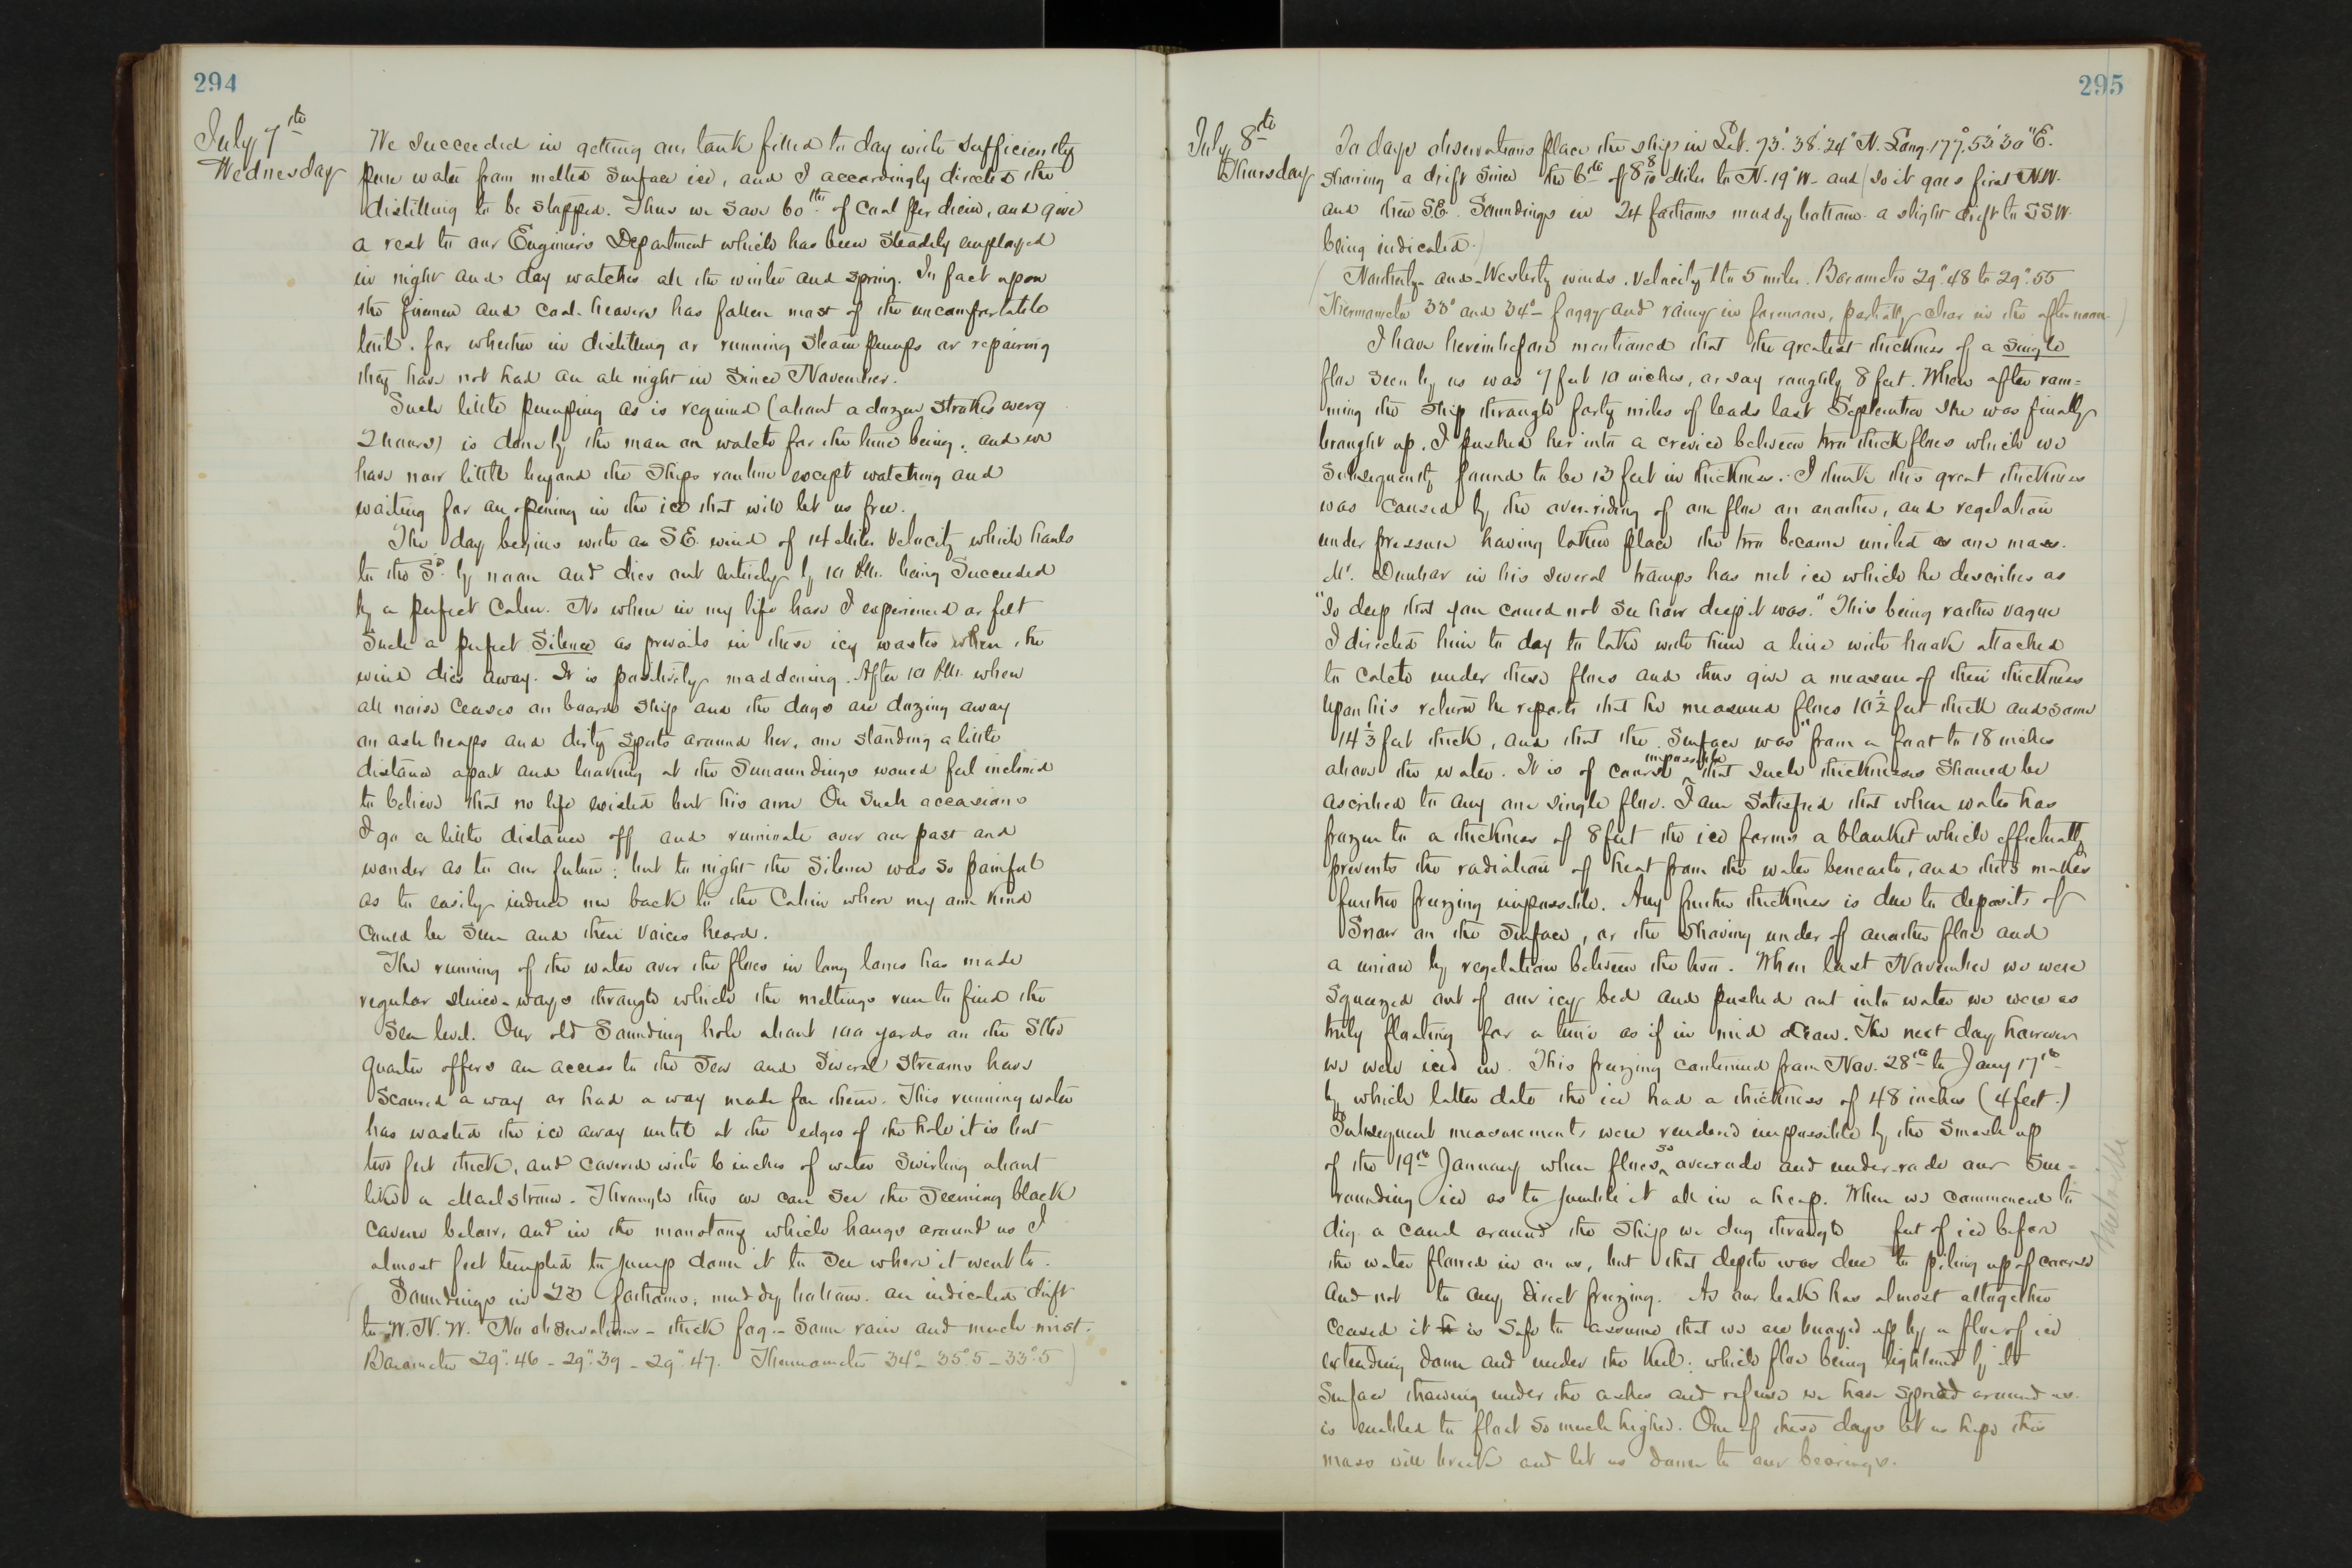 294
July 7th
Wednesday
We succeeded in getting our tank filled to day with sufficiently
pure water from melted surface ice, and I accordingly directed the
distilling to be stopped. Thus we save 60 lbs of coal per diem, and give
a rest to our Engineers Department which has been steadily employed
in night and day watches all the winter and spring. In fact upon
the firemen and coal-heavers has fallen most of the uncomfortable
lot. for whether in distilling or running steam pumps or repairing
they have not had an all night in since November.
Such little pumping as is required (about a dozen strokes every
2 hours) is done by the man on watch for the time being, and we
have now little beyond the ships routine except watching and
waiting for an opening in the ice that will let us free.
The day begins with an S.E. wind of 14 Miles velocity which hauls
to the Sd. by noon and dies out entirely by 10 P.M. being succeeded
by a perfect calm. No where in my life have I experienced or felt
such a perfect silence as prevails in these icy wastes when the
wind dies away. It is positively maddening. After 10 P.M. when
all noise ceases on board ship and the dogs are dozing away
on ash heaps and dirty spots around her, one standing a little
distance apart and looking at the surroundings would feel inclined
to believe that no life existed but his own. On such occasions
I go a little distance off and ruminate over our past and
wonder as to our future; but to night the silence was so painful
as to easily induce me back to the Cabin where my own kind
could be seen and their voices heard.
The running of the water over the floes in long lanes has made
regular sluice-ways through which the meltings run to find the
sea level. Our old sounding hole about 100 yards on the Stbd
quarter offers an access to the sea and several streams have
scoured a way or had a way made for them. This running water
has wasted the ice away until at the edges of the hole it is but
two feet thick, and covered with 6 inches of water swirling about
like a Maelstrom. Through this we can see the seeming black
cavern below, and in the monotony which hangs around us I
almost feel tempted to jump down it to see where it went to.
(Soundings in 23 fathoms; muddy bottom. an indicated drift
to W.N.W. No observations - thick fog - some rain and much mist.
Barometer 29".46 - 29".39 - 29".47. Thermometer 34° - 35°.5 - 33°.5)
295
July 8th
Thursday
To days observations place the ship in Lat. 73° 38' 24" N. Long. 177° 53' 30" E.
showing a drift since the 6th of 8 8/10 Miles to N. 19° W. and (so it goes first N.W.
and then S.E. Soundings in 24 fathoms muddy bottom. a slight drift to SSW.
being indicated.)
(Northerly and Westerly winds. velocity 1 to 5 miles. Barometer 29".48 to 29".55
Thermometer 33° and 34° - foggy and rainy in forenoon, partially clear in the afternoon.)
I have hereinbefore mentioned that the greatest thickness of a single
floe seen by us was 7 feet 10 inches, or say roughly 8 feet. When after ram=
ming the ship through forty miles of leads last September she was finally
brought up, I pushed her into a crevice between two thick floes which we
subsequently found to be 13 feet in thickness. I think this great thickness
was caused by the over-riding of one floe on another, and regelation
under pressure having taken place the two became united as one mass.
Mr. Dunbar in his several tramps has met ice which he describes as
"so deep that you could not see how deep it was." This being rather vague
I directed him to day to take with him a line with hook attached
to catch under these floes and thus give a measure of their thickness
Upon his return he reports that he measured floes 10 1/2 feet thick and some
14 1/3 feet thick, and that the surface was from a foot to 18 inches
above the water. It is of course impossible that such thicknesses should be
ascribed to any one single floe. I am satisfied that when water has
frozen to a thickness of 8 feet the ice forms a blanket which effectually
prevents the radiation of heat from the water beneath, and thus makes
further freezing impossible. Any further thickness is due to deposits of
snow on the surface, or the shoving under of another floe and
a union by regelation between the two. When last November we were
squeezed out of our icy bed and pushed out into water we were as
truly floating for a time as if in mid ocean. The next day however
we were iced in. This freezing continued from Nov. 28th to Jany 17th
by which latter date the ice had a thickness of 48 inches (4 feet.)
Subsequent measurements were rendered impossible by the smash up
of the 19th January when floes so overrode and under-rode our sur=
rounding ice as to jumble it all in a heap. When we commenced to
dig a canal around the ship we dug through feet of ice before
the water flowed in on us, but that depth was due to piling up of
and not to any direct freezing. As our leak has almost altogether
ceased it is safe to assume that we are buoyed up by a floe of ice
extending down and under the keel: which floe being lightened by its
surface thawing under the ashes and refuse we have spread around us
is enabled to float so much higher. One of these days let us hope this
mass will break and let us down to our bearings.